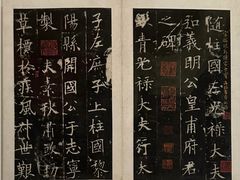 隨柱國左光祿大夫
義明公皇甫府君
之碑
青光祿大夫行太
子左庶子上柱國黎
陽縣開國公于志寧
製 夫素秋肅勁
草標於疾風世艱